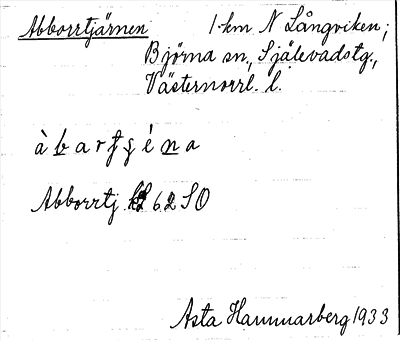 Abborrtjärnen 1 km N Långviken;
Björna sn., Själevadstg.,
Västernorrl. l.
àbartȿéna
Abborrtj. 62 SO
Asta Hammarberg 1933